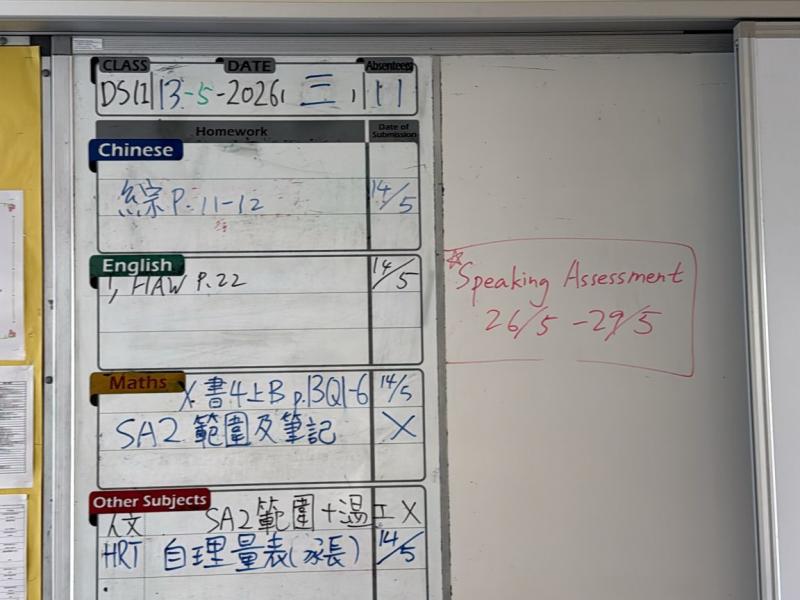 CLASS DATE Absentees
13-5-2026, 三,
Homework Date of Submission
Chinese
綜 P. 11-12 14/5
English
HAW P.22 14/5
Maths
書4上B p.13Q1-6 14/5
SA2 範圍及筆記 X
Other Subjects
人文 SA2範圍+溫工 X
HRT 自理量表(家長) 14/5
Speaking Assessment
26/5 - 29/5